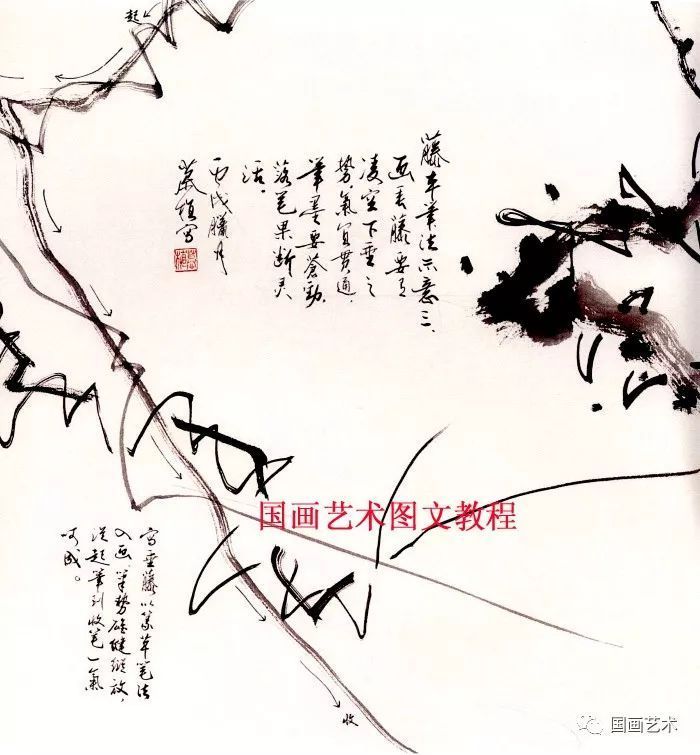 起
藤本笔法示意三、
画垂藤要有
凌空下垂之
势，氣宜贯通，
笔墨要苍劲，
落笔果断灵
活。
丙戌腊月
写
国画艺术图文教程
写垂藤以篆草笔法
入画，笔势雄健纵放，
从起笔到收笔一氣
呵成。
收
国画艺术